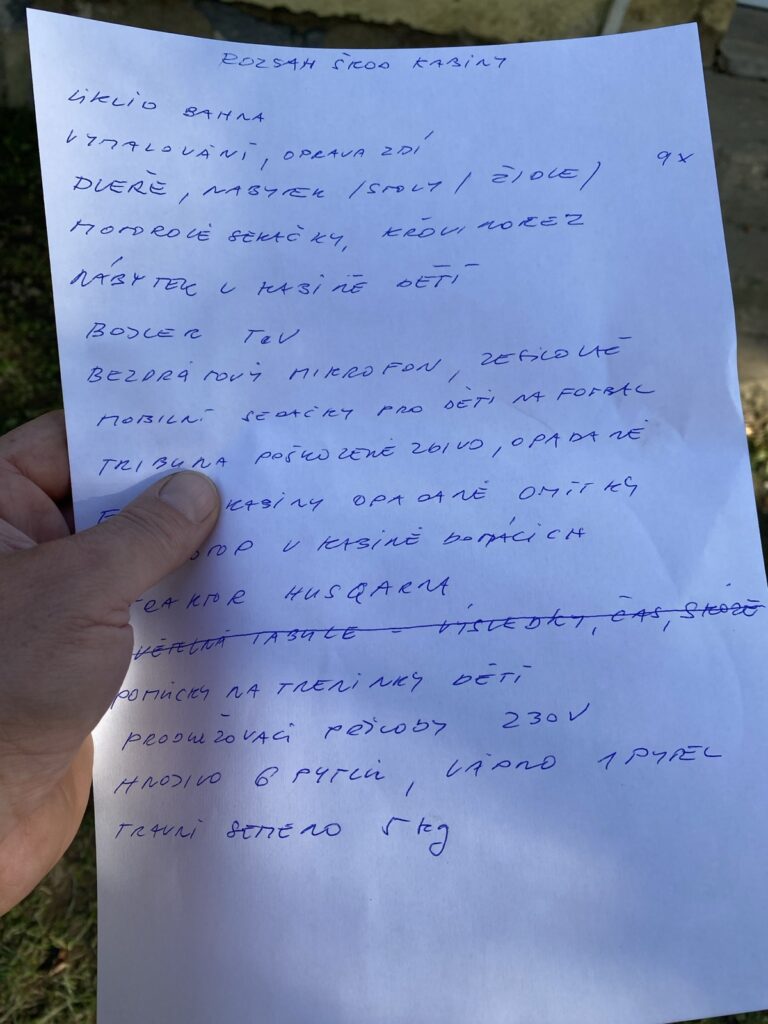 ROZSAH ŠKOD KABINY
ÚKLID BAHNA
VYMALOVÁNÍ, OPRAVA ZDÍ
DVEŘE, NÁBYTEK /STOLY / ŽIDLE/ 9x
MOTOROVÉ SEKAČKY, KŘOVINOŘEZ
NÁBYTEK V KABINĚ DĚTÍ
BOJLER TUV
BEZDRÁTOVÝ MIKROFON, ZESILOVAČ
MOBILNÍ SEDAČKY PRO DĚTI NA FOTBAL
TRIBUNA POŠKOZENÉ ZDIVO, OPADANÉ
KABINY OPADANÉ OMÍTKY
V KABINĚ DOMÁCÍCH
TRAKTOR HUSQARNA
SVĚTELNÁ TABULE - VÝSLEDKY, ČAS, SKÓRE
POMŮCKY NA TRENINKY DĚTÍ
PRODLUŽOVACÍ PŘÍVODY 230V
HNOJIVO 6 PYTLŮ, VÁPNO 1 PYTEL
TRAVNÍ SEMENO 5 kg